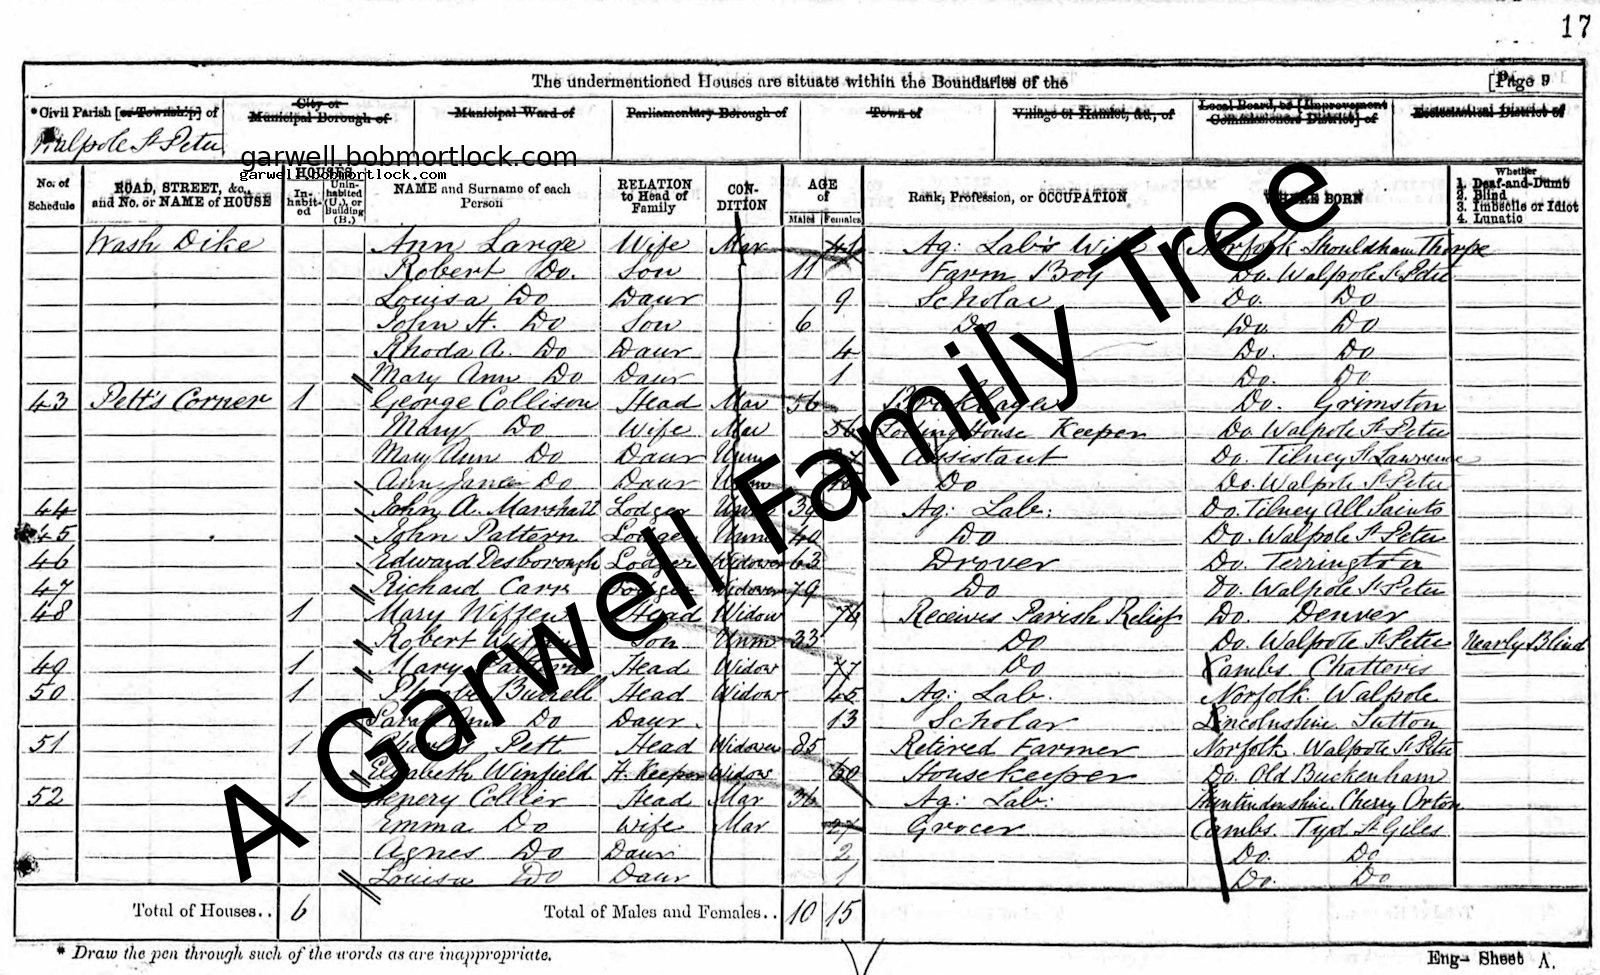 17
The undermentioned Houses are situate within the Boundaries of the [Page 9
*Civil Parish [or Township] of City or Municipal Borough of Municipal Ward of Parliamentary Borough of Town of Village or Hamlet, &c., of Local Board, or [Improvement Commissioners District] of Ecclesiastical District of
Walpole St Peter
garwell.bobmortlock.com
garwell.bobmortlock.com
No. of Schedule ROAD, STREET, &c., and No. or NAME of HOUSE HOUSES In-habit-ed Unin-habited (U.), or Building (B.) NAME and Surname of each Person RELATION to Head of Family CON-DITION AGE of Males Females Rank, Profession, or OCCUPATION WHERE BORN Whether 1. Deaf-and-Dumb 2. Blind 3. Imbecile or Idiot 4. Lunatic
Wash Dike Ann Large Wife Mar Ag: Lab's Wife Norfolk Shouldham Thorpe
Robert Do. Son 11 Farm Boy Do. Walpole St Peter
Louisa Do Daur 9 Scholar Do. Do
John H. Do Son 6 Do Do. Do
Rhoda A. Do Daur 4 Do. Do
Mary Ann Do Daur 1 Do. Do
43 Pett's Corner 1 George Collison Head Mar 56 Bricklayer Do. Grimston
Mary Do Wife Mar 56 Lodging House Keeper Do. Walpole St Peter
Mary Ann Do Daur Unm Assistant Do. Tilney St Lawrence
Ann Jane Do Daur Unm Do Do. Walpole St Peter
44 John A. Marshall Lodger Unm Ag: Lab: Do. Tilney All Saints
45 John Pattern Lodger Unm 40 Do Do. Walpole St Peter
46 Edward Desborough Lodger Widower 63 Drover Do. Terrington
47 Richard Carr Lodger Widower 79 Do Do. Walpole St Peter
48 1 Mary Wiffen Head Widow 76 Receives Parish Relief Do. Denver
Robert Son Unm 33 Do Do. Walpole St Peter Nearly Blind
49 1 Mary Pattern Head Widow 77 Do Cambs Chatteris
50 1 Head Widow 45 Ag: Lab. Norfolk. Walpole
Sarah Ann Do Daur. 13 Scholar Lincolnshire Sutton
51 1 Pett Head Widower 85 Retired Farmer Norfolk. Walpole St Peter
Elizabeth Winfield H. Keeper Widow 60 Housekeeper Do. Old Buckenham
52 1 Henery Collier Head Mar 36 Ag: Lab: Huntindonshire. Cherry Orton
Emma Do Wife Mar 27 Grocer Cambs. Tyd St Giles
Agnes Do Daur 2 Do. Do
Louisa Do Daur 1 Do. Do
Total of Houses.. 6 Total of Males and Females.. 10 15
* Draw the pen through such of the words as are inappropriate. Eng- Sheet A.
A Garwell Family Tree